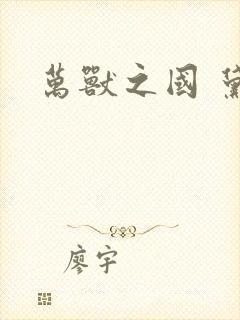 萬獸之國
廖宇